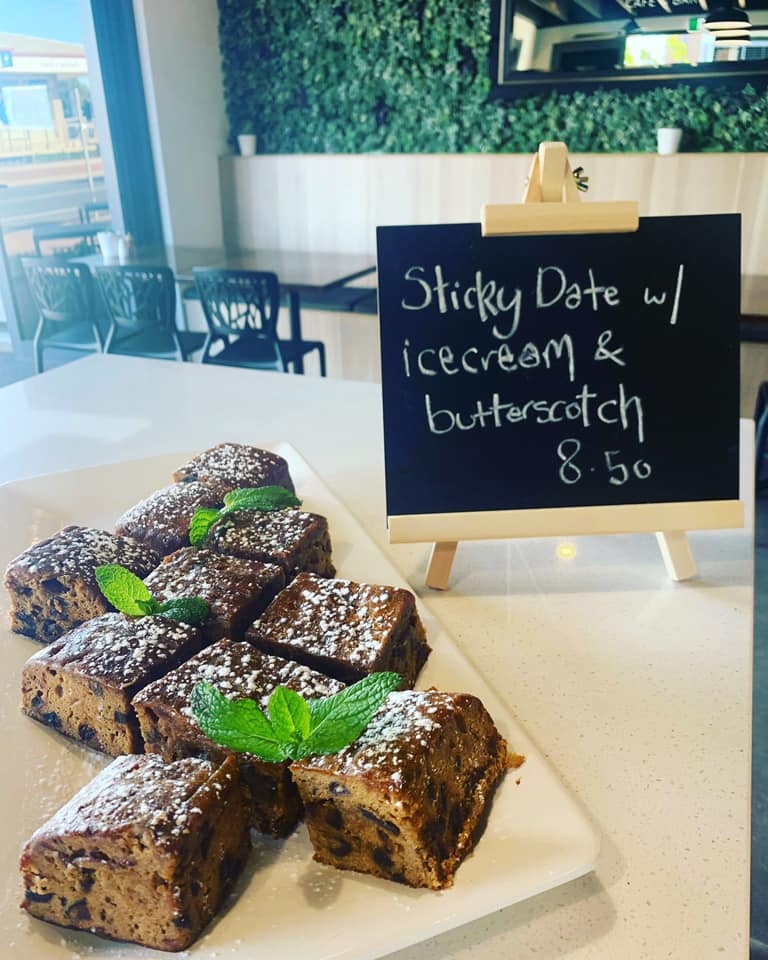 CAFE BAR
Sticky Date w/
icecream &
butterscotch
8.50